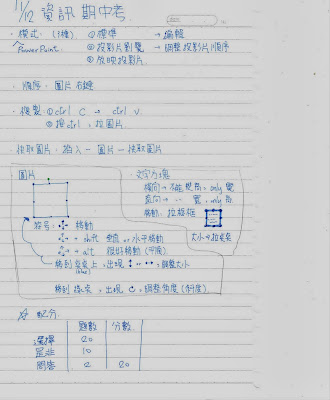 11/12 資訊 期中考
·模式:(3種) ①標準 → 編輯
PowerPoint ②投影片瀏覽 → 調整投影片順序
③放映投影片
·順序:圖片右鍵
·複製:①ctrl C → ctrl V
②按ctrl,拉圖片
·快取圖片:插入－圖片－快取圖片
圖片
符號: 移動
+ shift 垂直 or 水平移動
+ alt 很好移動
移到 上,出現 ↕ or ↔,調整大小
移到 ,出現 ↻,調整角度
文字方塊
橫向→不能 高,only 寬
直向→ 〃 寬,only 高
移動:拉 框
大小→拉
☆ 配分
題數 分數
選擇 20
是非 10
問答 2 20